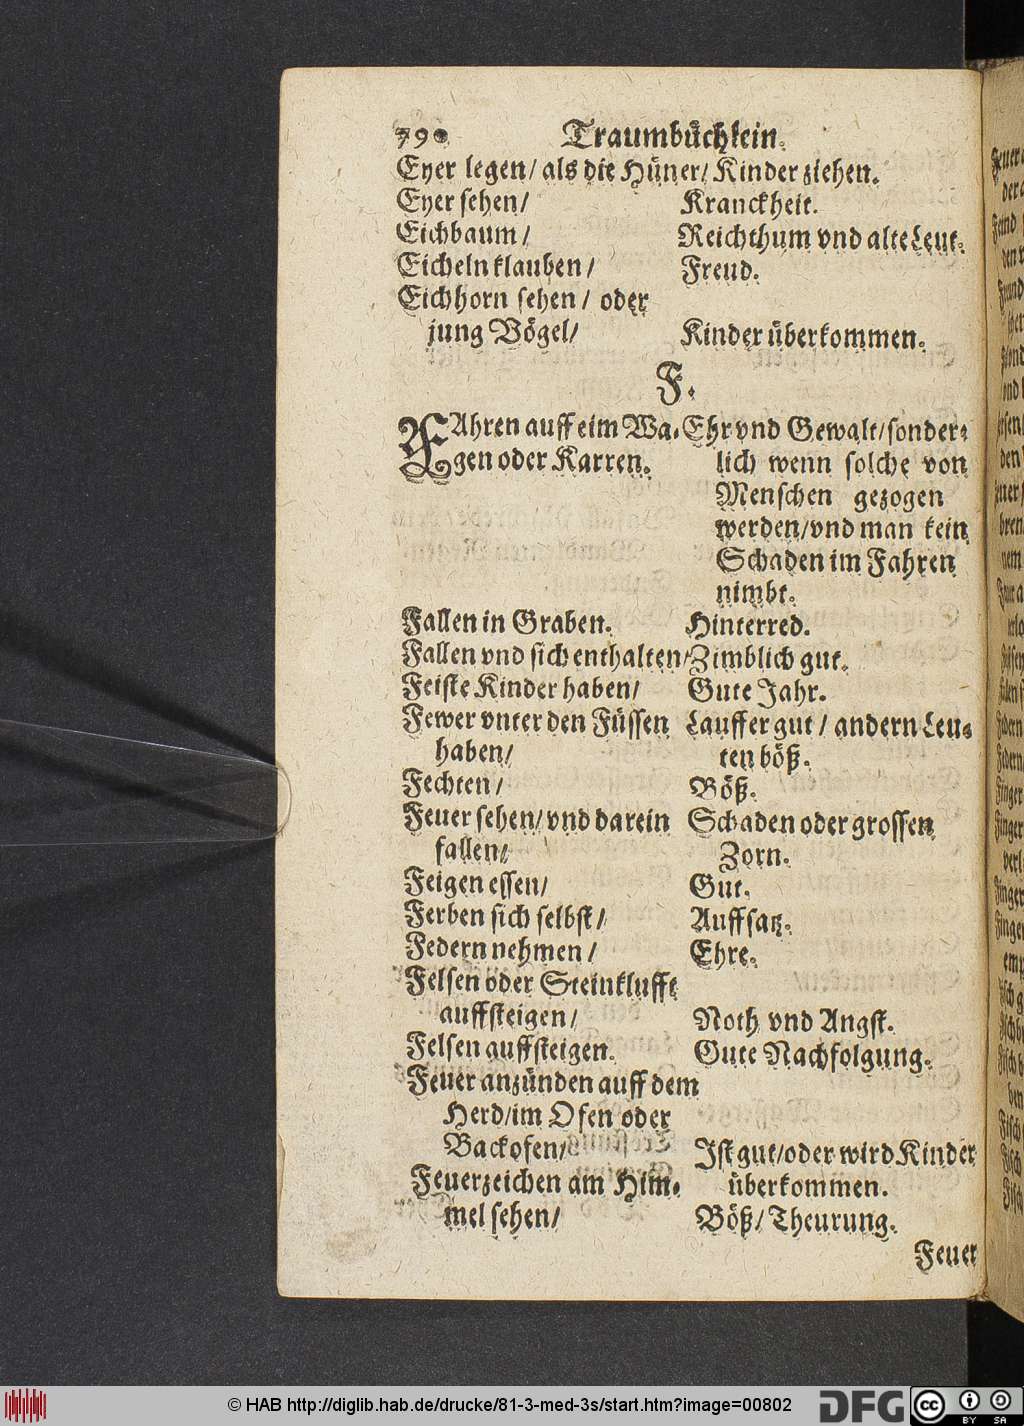 790 Traumbüchlein.
Eyer legen/ als die Hüner/ Kinder ziehen.
Eyer sehen/ Kranckheit.
Eichbaum/ Reichthum vnd alte Leut.
Eicheln klauben/ Freud.
Eichhorn sehen/ oder
jung Vögel/ Kinder überkommen.
F.
FAhren auff eim Wa- Ehr vnd Gewalt/ sonder-
gen oder Karren. lich wenn solche von
Menschen gezogen
werden/ vnd man kein
Schaden im Fahren
nimbt.
Fallen in Graben. Hinterred.
Fallen vnd sich enthalten/ Zimblich gut.
Feiste Kinder haben/ Gute Jahr.
Fewer vnter den Füssen Lauffer gut/ andern Leu-
haben/ ten böß.
Fechten/ Böß.
Feuer sehen/ vnd darein Schaden oder grossen
fallen/ Zorn.
Feigen essen/ Gut.
Ferben sich selbst/ Auffsatz.
Federn nehmen/ Ehre.
Felsen oder Steinklufft
auffsteigen/ Noth vnd Angst.
Felsen auffsteigen. Gute Nachfolgung.
Feuer anzünden auff dem
Herd/ im Ofen oder
Backofen/ Ist gut/ oder wird Kinder
Feuerzeichen am Him- überkommen.
mel sehen/ Böß/ Theurung.
Feuer
© HAB http://diglib.hab.de/drucke/81-3-med-3s/start.htm?image=00802
DFG
cc
BY SA